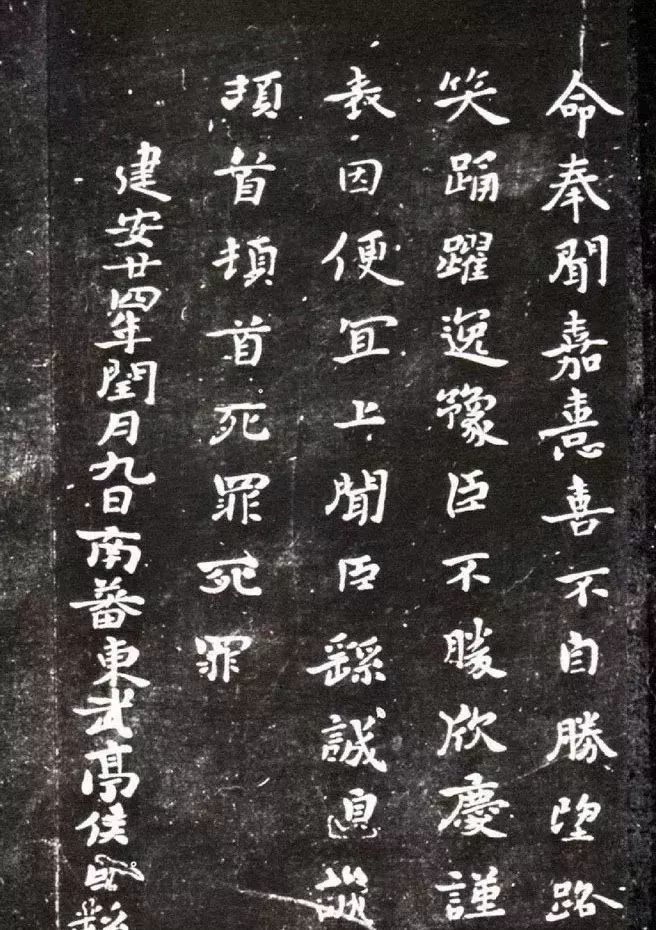 命奉聞嘉憙喜不自勝望路
笑踊躍逸豫臣不勝欣慶謹
表因便冝上聞臣繇誠惶誠
頓首頓首死罪死罪
建安廿四年閏月九日南蕃東武亭侯臣繇